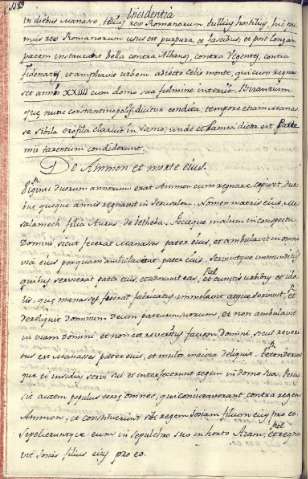 Incidentia
in diebus Manasse, tullius rex Romanorum hostilius, hic pri
mus rex Romanorum usus est purpura et fascibus, et post longam
pacem instauravit bella contra Albanos, contra
fidenates, et ampliavit urbem adiecto celio monte, qui cum regnas
set annis XXXII cum domo sua fulmine
que nunc constantinopolis dicitur condita tempore etiam manas
se sibilla erofila claruit in samo, unde et Samia dicta est
tini tarentum condiderunt.
De Ammon et morte eius.
Viginti duorum annorum erat Ammon cum regnare cepisset, duo
bus quoque annis regnavit in Jerusalem. Nomen matris eius, Me
salamech filia Arus de Jetheba. fecitque malum in conspectu
Domini sicut fecerat Manasses pater eius, et ambulavit in omni
via eius per quam ambulaverat pater eius. Servivitque
quibus servierat pater eius, et adoravit eas, et
lis, que manasses fecerat immolavit atque servivit, et
dereliquit dominum deum patrum suorum, et non ambulavit
in viam domini, et non est reveritus faciem domini, sicut reveri
tus est Manasses pater eius, et multo maiora deliquit. tetenderunt
que ei insidias servi sui et interfecerunt regem in domo sua. Percus
sit autem populus terre omnes, qui coniuraverant contra regem
Ammon, et constituerunt sibi regem Josiam filium eius pro eo.
Sepelieruntque eum in sepulchro suo in horto Azam, et regna
vit Josias filius eius pro eo.